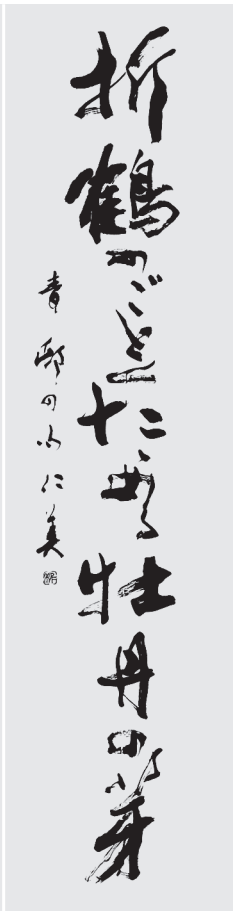 折鶴のごとくたゝめる牡丹の芽
青邨の句 仁美